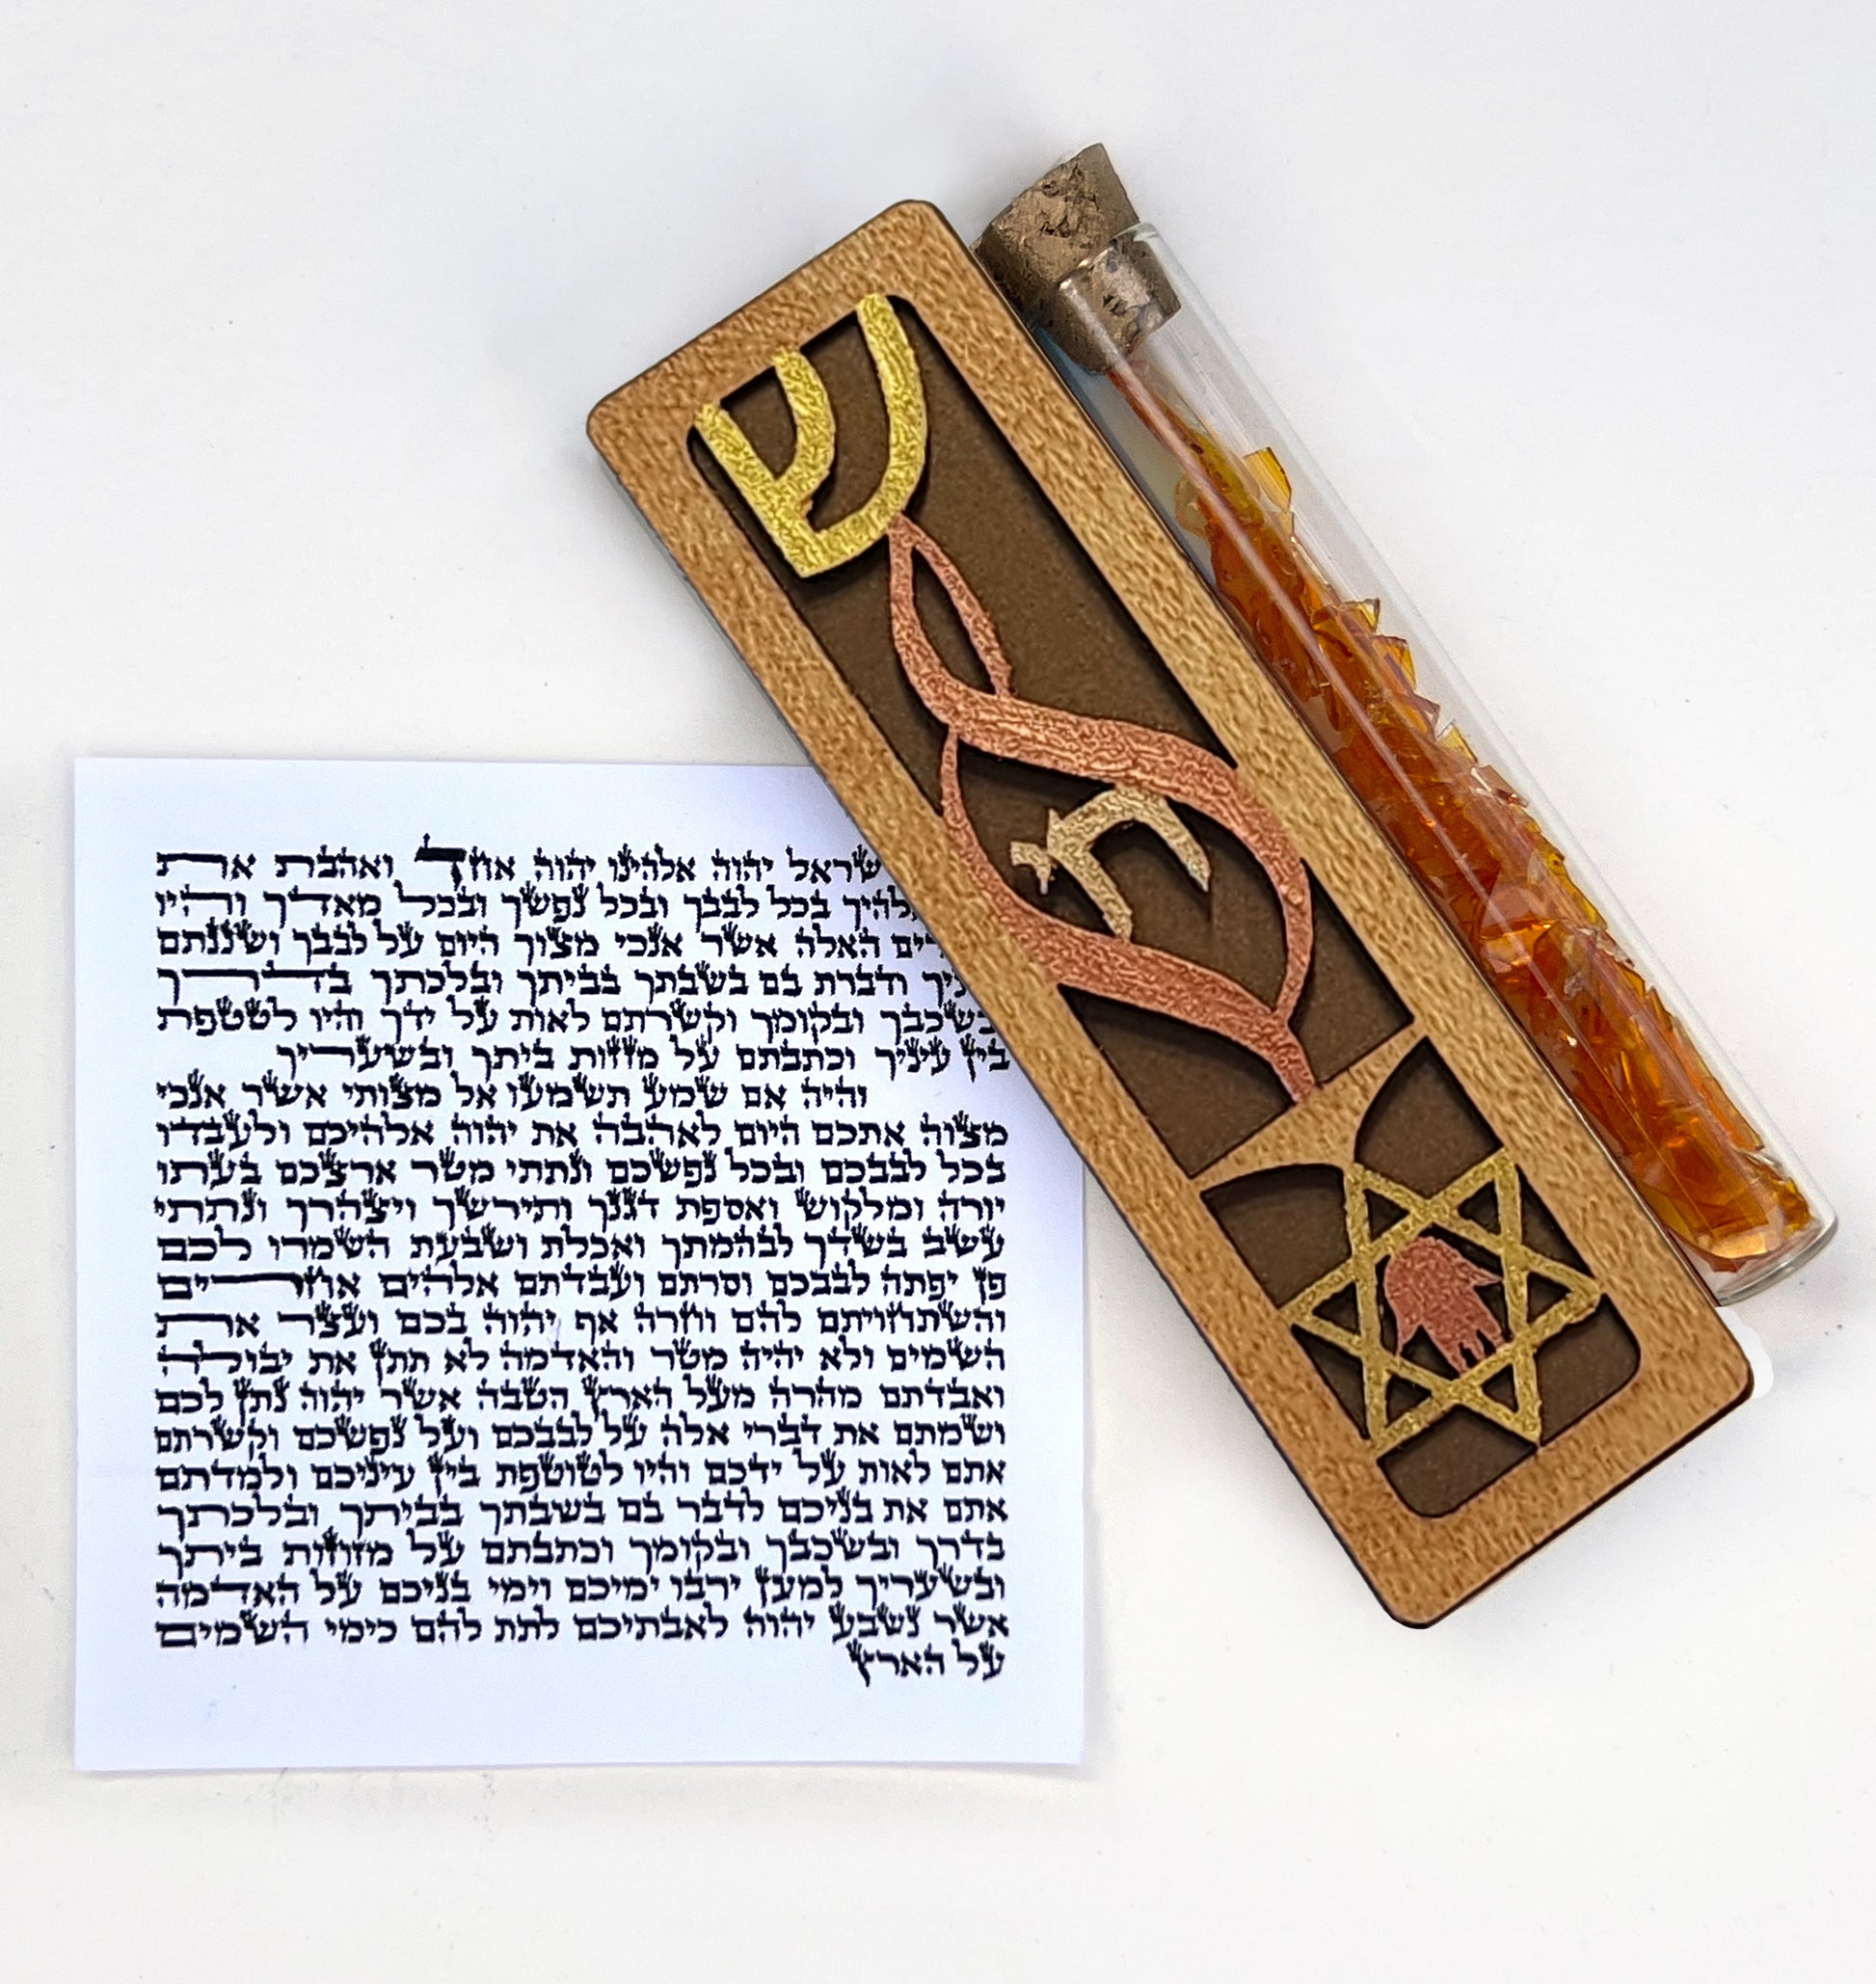 שראל יהוה אלהינו יהוה אחד ואהבת את
אלהיך בכל לבבך ובכל נפשך ובכל מאדך והיו
האלה אשר אנכי מצוך היום על לבבך ושננתם
ודברת בם בשבתך בביתך ובלכתך בדרך
בשכבך ובקומך וקשרתם לאות על ידך והיו לטטפת
בין עיניך וכתבתם על מזזות ביתך ובשעריך
והיה אם שמע תשמעו אל מצותי אשר אנכי
מצוה אתכם היום לאהבה את יהוה אלהיכם ולעבדו
בכל לבבכם ובכל נפשכם ונתתי מטר ארצכם בעתו
יורה ומלקוש ואספת דגנך ותירשך ויצהרך ונתתי
עשב בשדך לבהמתך ואכלת ושבעת השמרו לכם
פן יפתה לבבכם וסרתם ועבדתם אלהים אחרים
והשתחויתם להם וחרה אף יהוה בכם ועצר את
השמים ולא יהיה מטר והאדמה לא תתן את יבולה
ואבדתם מהרה מעל הארץ הטבה אשר יהוה נתן לכם
ושמתם את דברי אלה על לבבכם ועל נפשכם וקשרתם
אתם לאות על ידכם והיו לטוטפת בין עיניכם ולמדתם
אתם את בניכם לדבר בם בשבתך בביתך ובלכתך
בדרך ובשכבך ובקומך וכתבתם על מזוזות ביתך
ובשעריך למען ירבו ימיכם וימי בניכם על האדמה
אשר נשבע יהוה לאבתיכם לתת להם כימי השמים
על הארץ
ש
חי